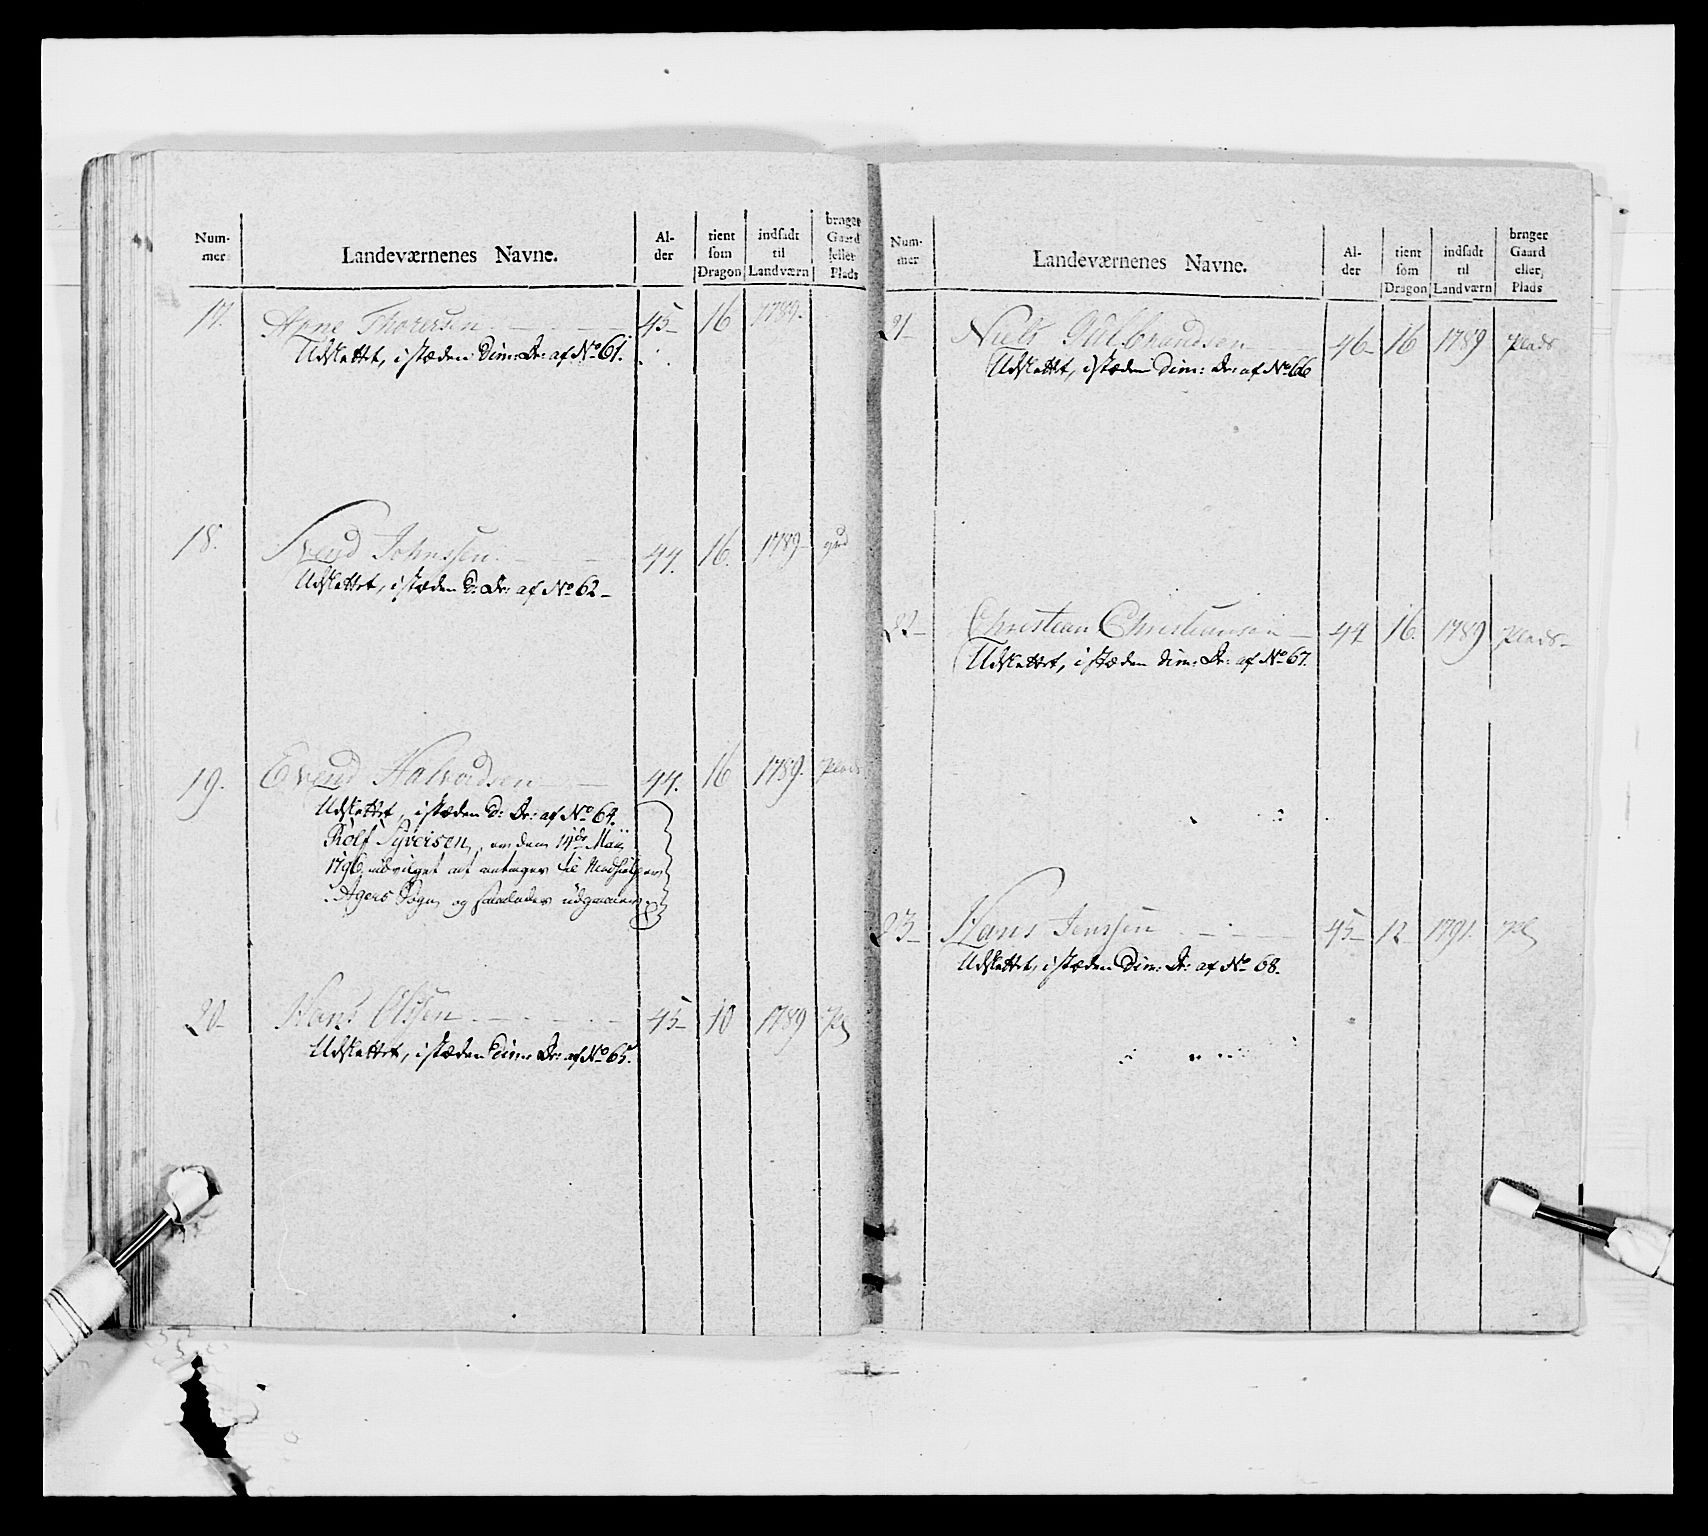 Num-
mer
Landeværnenes Navne.
Al-
der
tient
som
Dragon
indsadt
til
Landværn
bruger
Gaard
eller
Plads
17. Arne Thoresen 45 16 1789.
Udskattet, i stæden Dim: Dr: af No 61.
18. Svend Johnssen 44. 16. 1789 grd
Udskattet, i stæden D: Dr: af No 62
19. Evend Halvordsen 44. 16 1789. Plads
Udskattet, i stæden D: Dr: af No 64.
Rolf Syversen, er dem 14de Maii
1796 udvilget at antages til Medhielper
i Agers Sogn og saaledes udgaaer
20 Hans Olssen 45 10 1789 Pl
Udskattet, i stæden Dim: Dr: af No 65.
Num-
mer
Landeværnenes Navne.
Al-
der
tient
som
Dragon
indsadt
til
Landværn
bruger
Gaard
eller
Plads
21 Niels Gulbrandsen 46 16 1789 Plads
Udskattet, i stæden Dim: Dr: af No 66
22 Christian Christiansen 44 16 1789 Plads
Udskattet, i stæden Dim: Dr: af No 67.
23 Hans Jenssen 45 12 1791. Pl
Udskattet, i stæden Dim: Dr: af No 68.